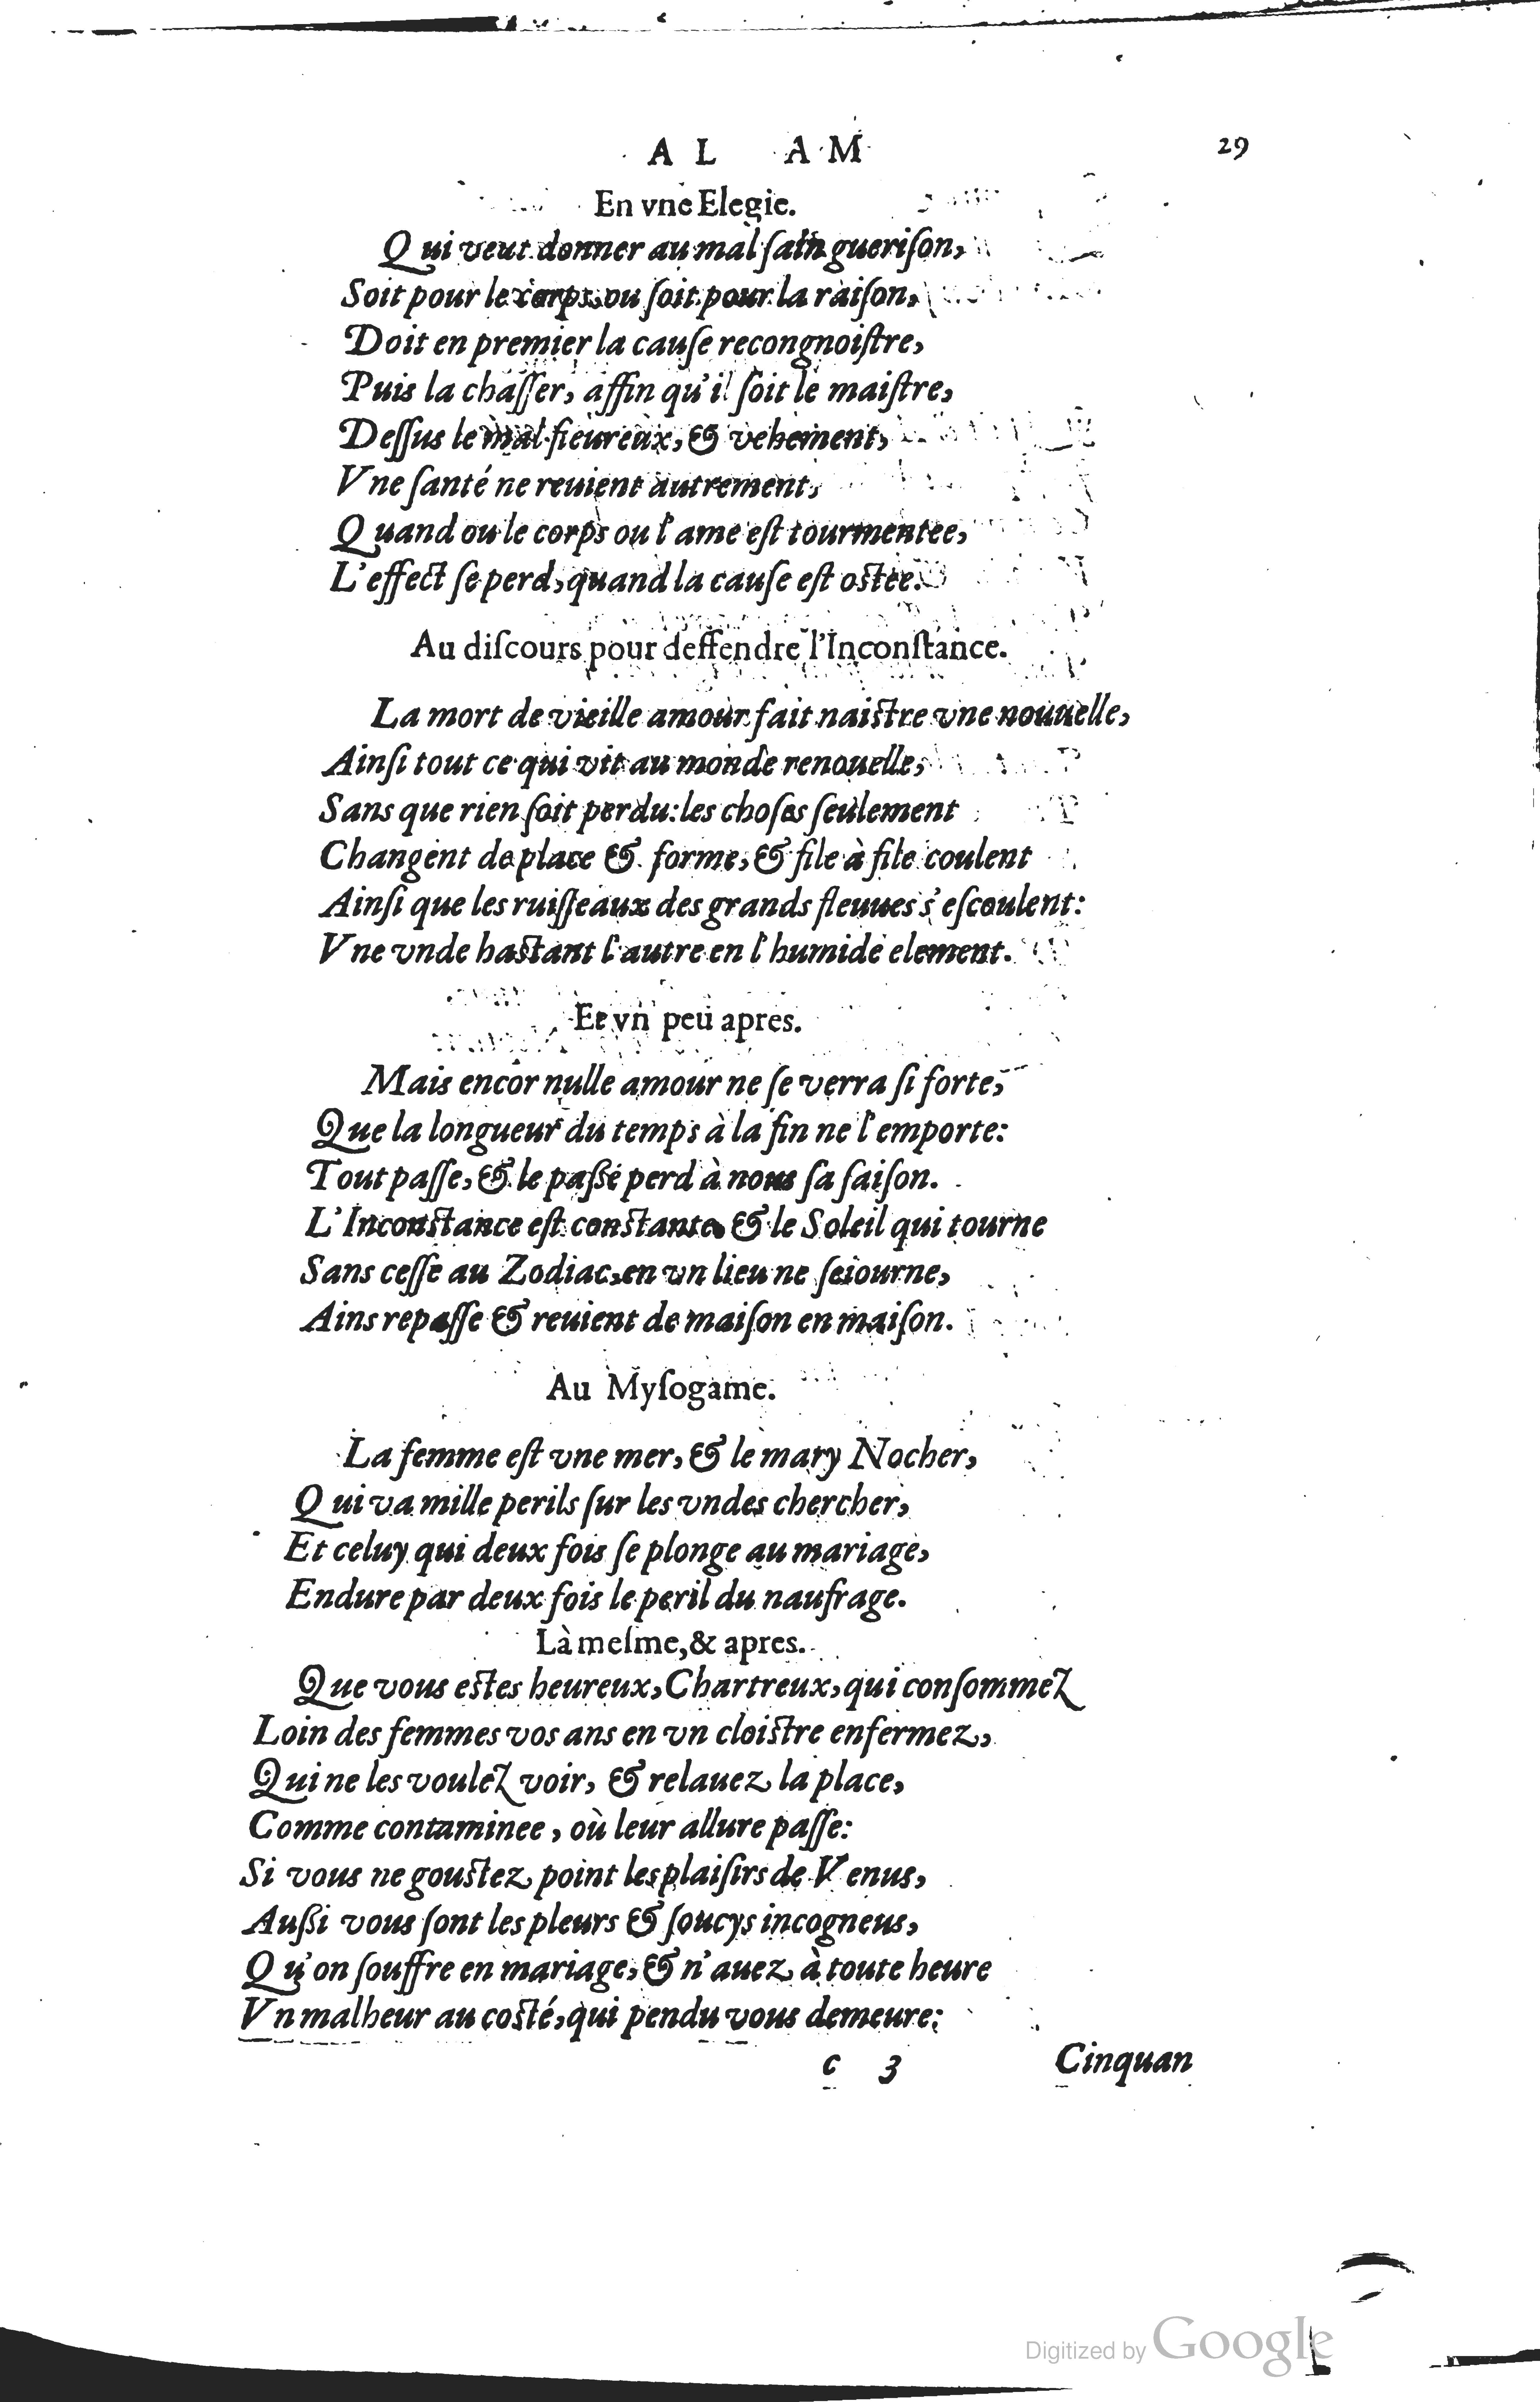 A L A M 29
En vne Elegie.
Qui veut donner au mal ſain gueriſon,
Soit pour le corps, ou ſoit pour la raiſon,
Doit en premier la cauſe recongnoiſtre,
Puis la chaſſer, affin qu'il ſoit le maiſtre,
Deſſus le mal fieureux, & vehement,
Vne ſanté ne reuient autrement,
Quand ou le corps ou l'ame eſt tourmentee,
L'effect ſe perd, quand la cauſe eſt oſtee.
Au diſcours pour deffendre l'Inconſtance.
La mort de vieille amour fait naiſtre vne nouuelle,
Ainſi tout ce qui vit au monde renouelle,
Sans que rien ſoit perdu: les choſes ſeulement
Changent de place & forme, & file à file coulent
Ainſi que les ruiſſeaux des grands fleuues s'eſcoulent:
Vne vnde haſtant l'autre en l'humide element.
Et vn peu apres.
Mais encor nulle amour ne ſe verra ſi forte,
Que la longueur du temps à la fin ne l'emporte:
Tout paſſe, & le paßé perd à nous ſa ſaiſon.
L'Inconſtance eſt conſtante, & le Soleil qui tourne
Sans ceſſe au Zodiac, en vn lieu ne ſeiourne,
Ains repaſſe & reuient de maiſon en maiſon.
Au Myſogame.
La femme eſt vne mer, & le mary Nocher,
Qui va mille perils ſur les vndes chercher,
Et celuy qui deux fois ſe plonge au mariage,
Endure par deux fois le peril du naufrage.
Là meſme, & apres.
Que vous eſtes heureux, Chartreux, qui conſommez
Loin des femmes vos ans en vn cloiſtre enfermez,
Qui ne les voulez voir, & relauez la place,
Comme contaminee, où leur allure paſſe:
Si vous ne gouſtez point les plaiſirs de Venus,
Außi vous ſont les pleurs & ſoucys incogneus,
Qu'on ſouffre en mariage, & n'auez à toute heure
Vn malheur au coſté, qui pendu vous demeure:
c 3 Cinquan
Digitized by Google